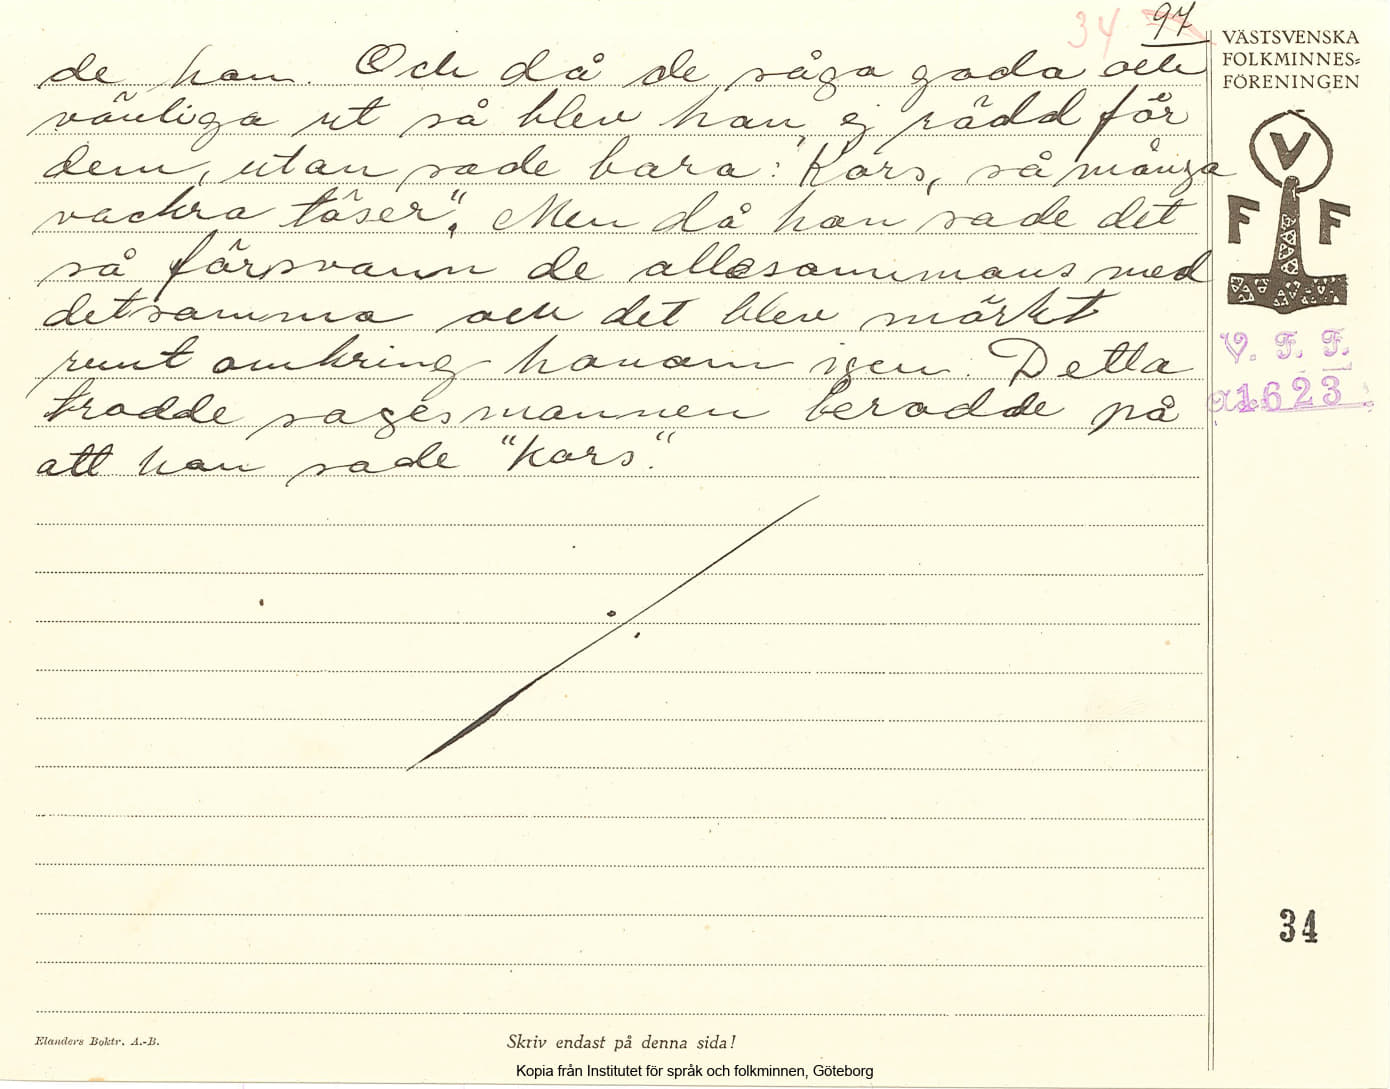 34 97
VÄSTSVENSKA
FOLKMINNES=
FÖRENINGEN
de han. Och då de såga goda och
vänliga ut så blev han ej rädd för
dem, utan sade bara: "Kors, så många
vackra töser". Men då han sade det
så försvann de allesammans med
detsamma och det blev mörkt
runt omkring honom igen. Detta
trodde sagesmannen berodde på
att han sade "kors".
V
F F
V. F. F.
1623
34
Elanders Boktr. A.-B.
Skriv endast på denna sida!
Kopia från Institutet för språk och folkminnen, Göteborg